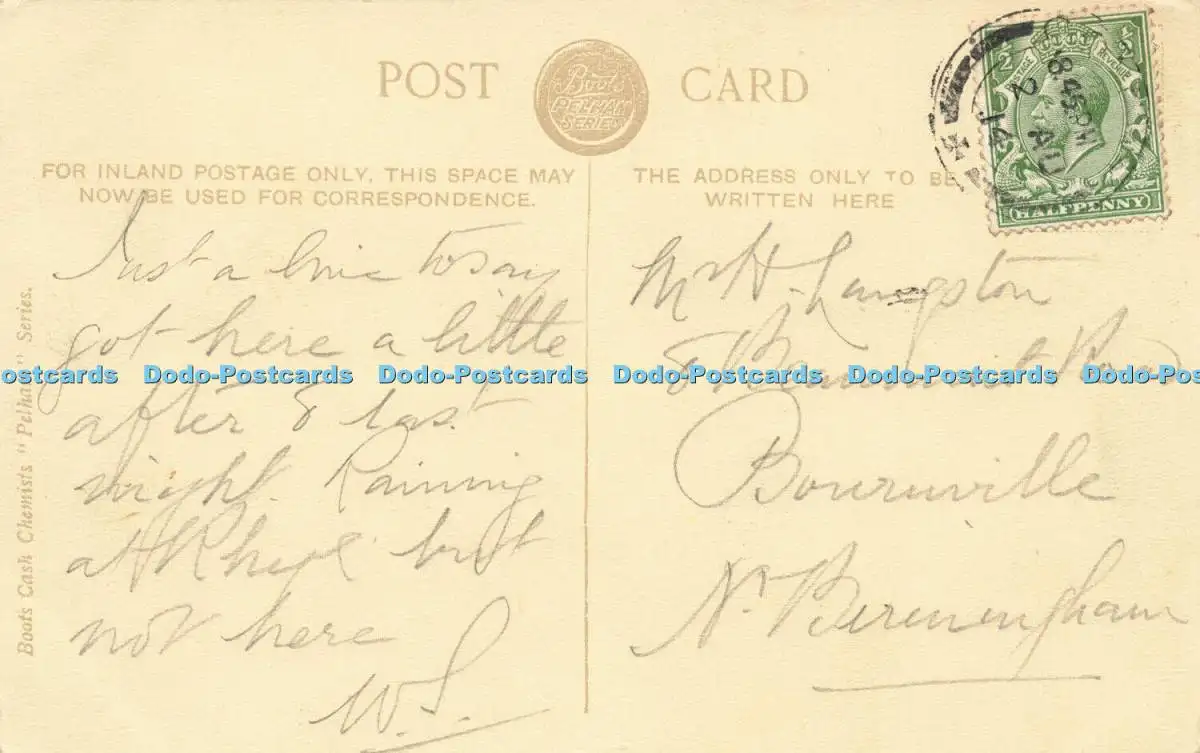 POST CARD
Boots
PELHAM
SERIES
FOR INLAND POSTAGE ONLY, THIS SPACE MAY
NOW BE USED FOR CORRESPONDENCE.
THE ADDRESS ONLY TO BE
WRITTEN HERE
POSTAGE REVENUE
HALFPENNY
8.45 PM
2 AU
14
Just a line to say
got here a little
after 8 last
night. Raining
at Rhyl but
not here
W.S.
Mr H. Langston
8 Beaumont Rd
Bournville
Nr Birmingham
Boots Cash Chemists "Pelham" Series.
Dodo-Postcards Dodo-Postcards Dodo-Postcards Dodo-Postcards